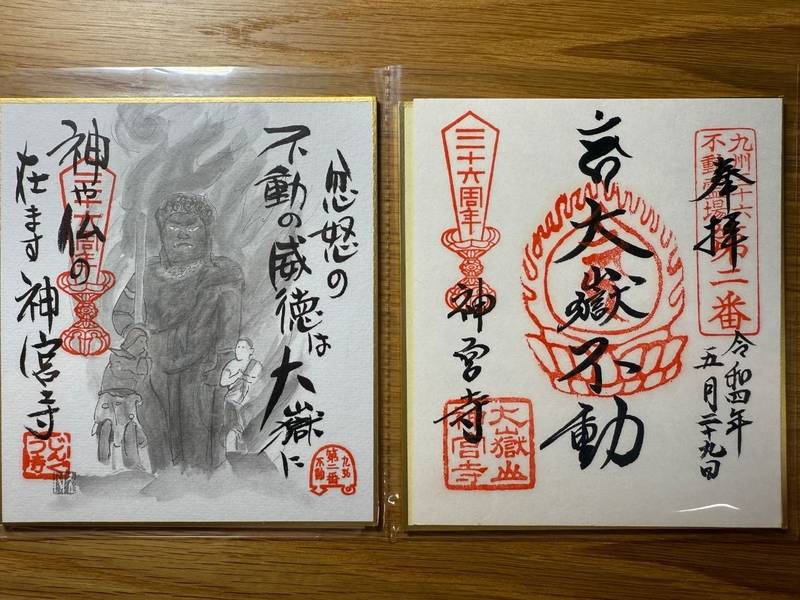 九州三十六
不動霊場
第二番
奉拝
令和四年
五月二十九日
大嶽不動
三十六周年
神宮寺
大嶽山
神宮寺
忿怒の
不動の威徳は大嶽に
神や仏の
在ます神宮寺
三十六周年
第二番